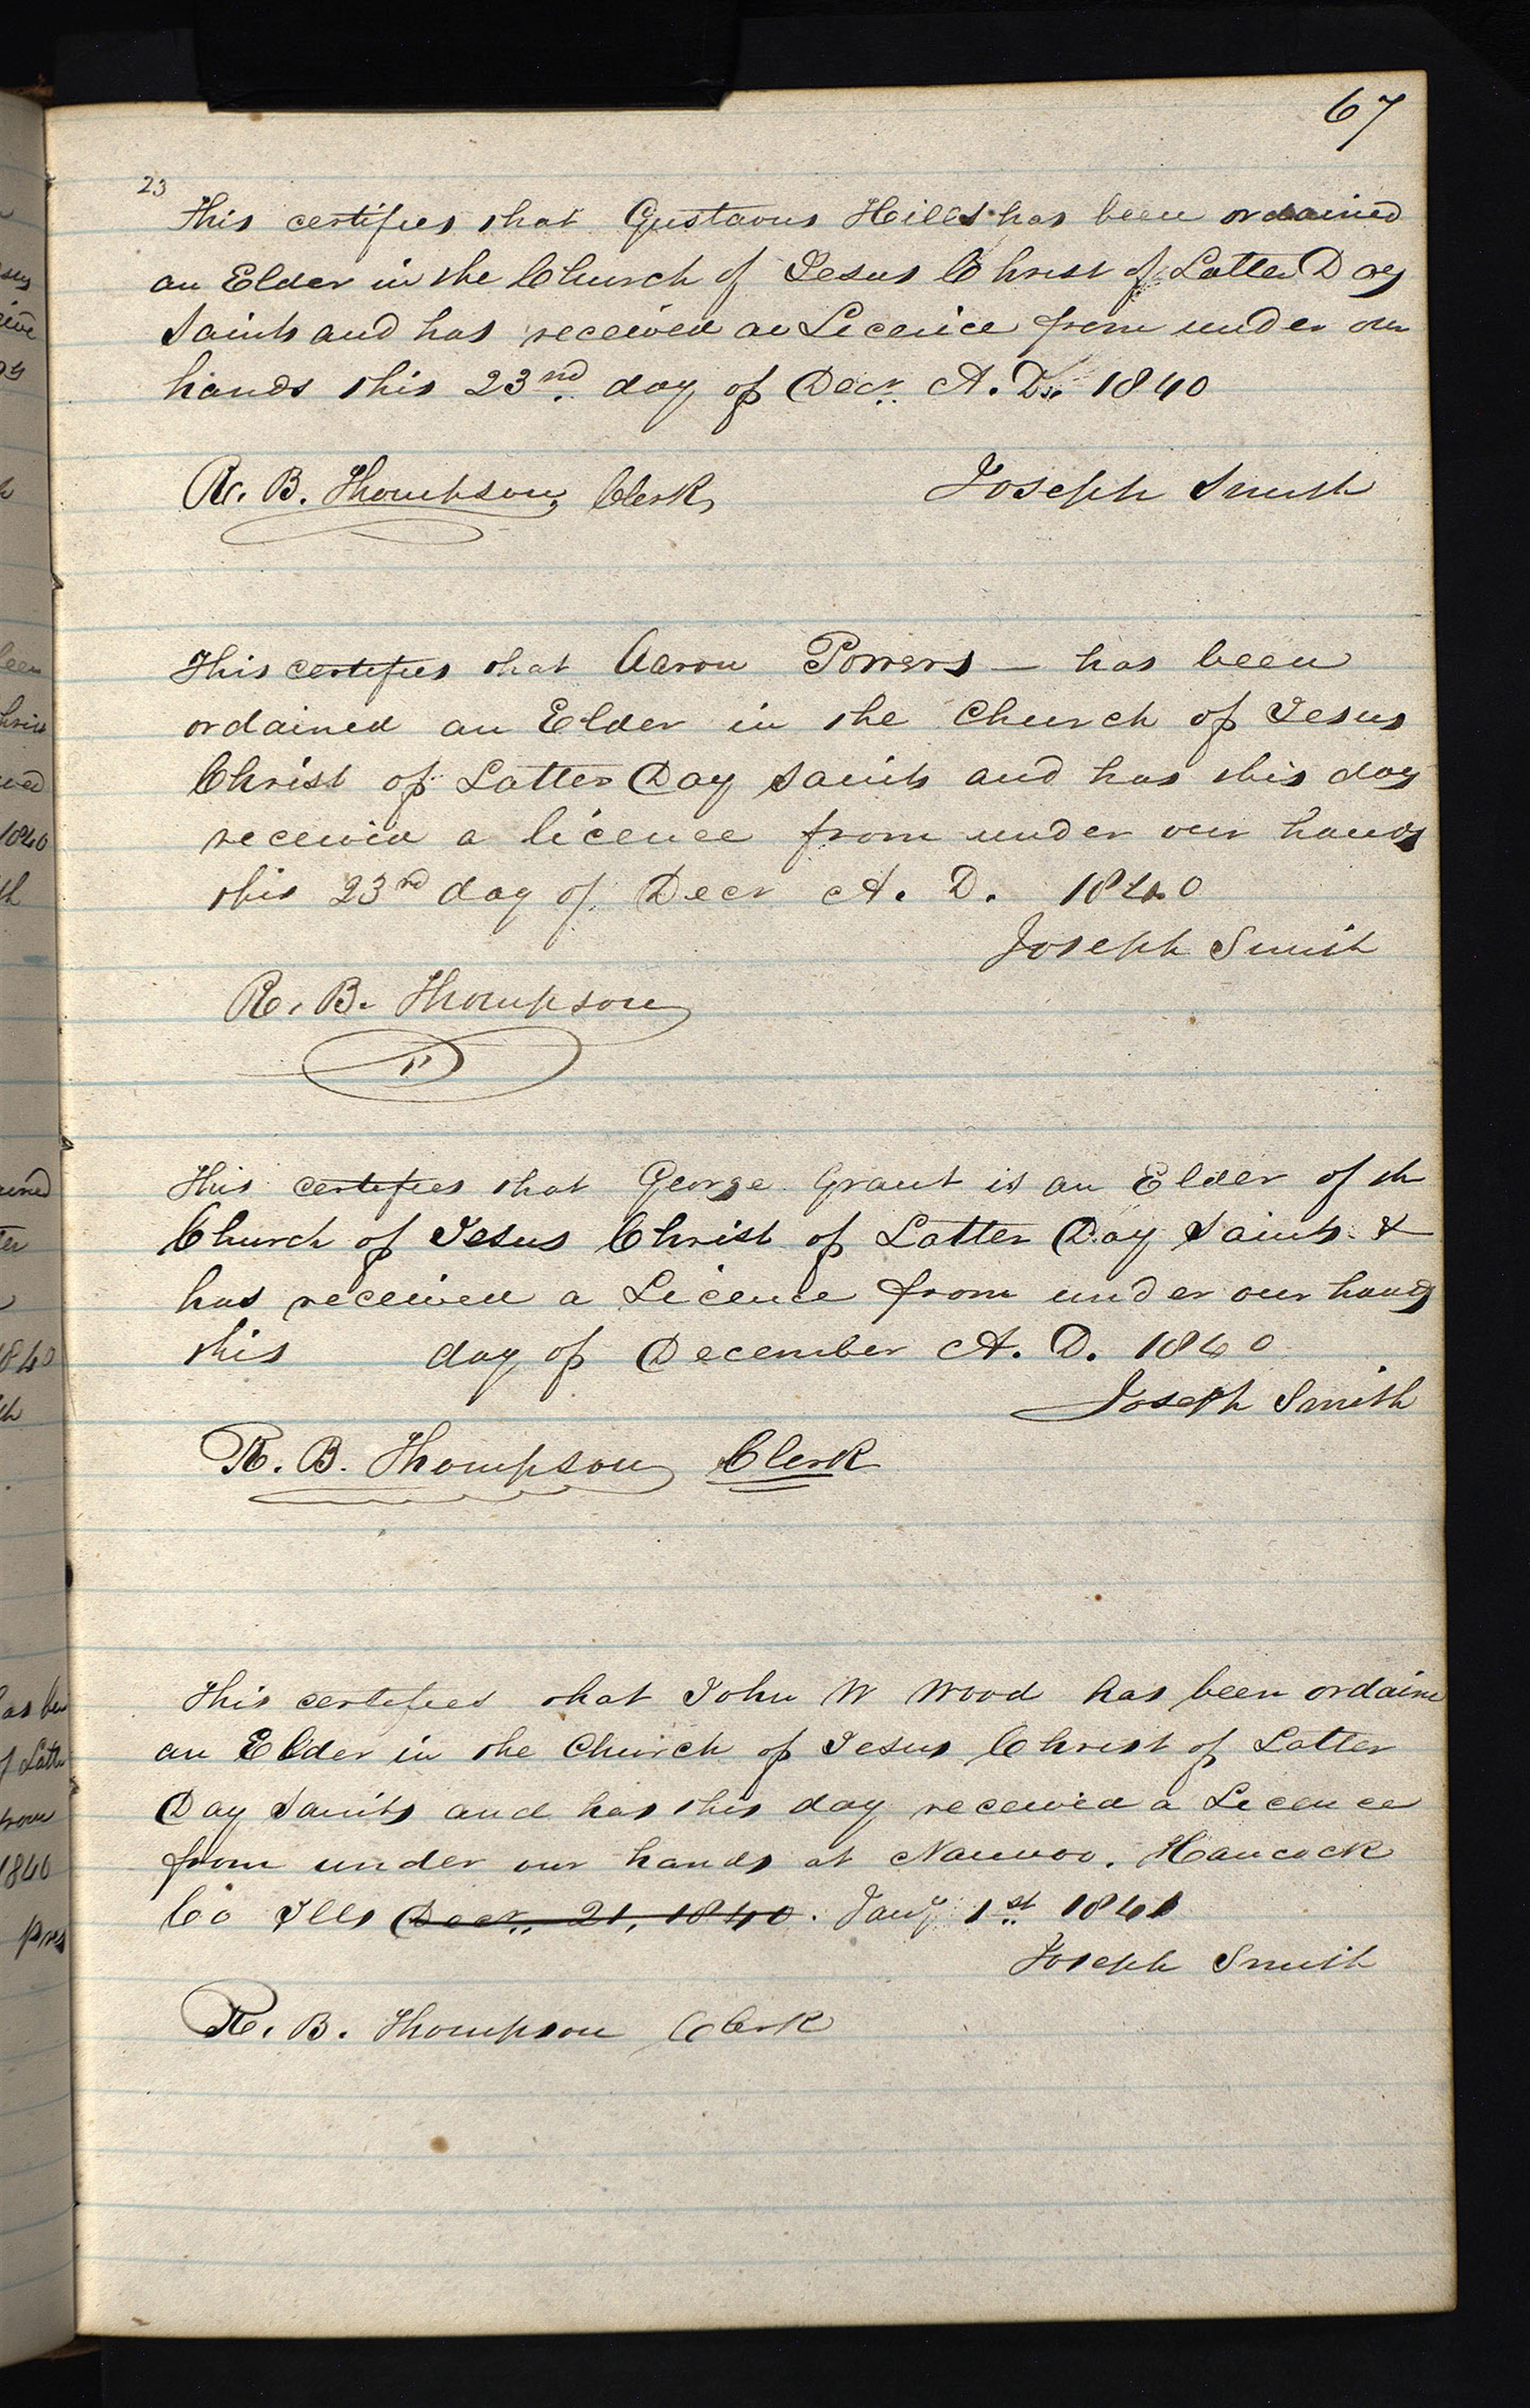 67
23
This certifies that Gustavus Hills has been ordained
an Elder in the Church of Jesus Christ of Latter Day
Saints and has received a Licence from under our
hands this 23nd day of Decr. A. D. 1840
R. B. Thompson, Clerk, Joseph Smith
This certifies that Aaron Powers — has been
ordained an Elder in the Church of Jesus
Christ of Latter Day Saints and has this day
received a licence from under our hands
this 23rd day of Decr A. D. 1840
Joseph Smith
R. B. Thompson
This certifies that George Grant is an Elder of the
Church of Jesus Christ of Latter Day Saints &
has received a Licence from under our hands
this day of December A. D. 1840
Joseph Smith
R. B. Thompson Clerk
This certifies that John W Wood has been ordaine
an Elder in the Church of Jesus Christ of Latter
Day Saints and has this day received a Licence
from under our hands at Nauvoo. Hancock
Co Ills Decr. 21, 1840. Jany 1st 1841
Joseph Smith
R. B. Thompson Clerk